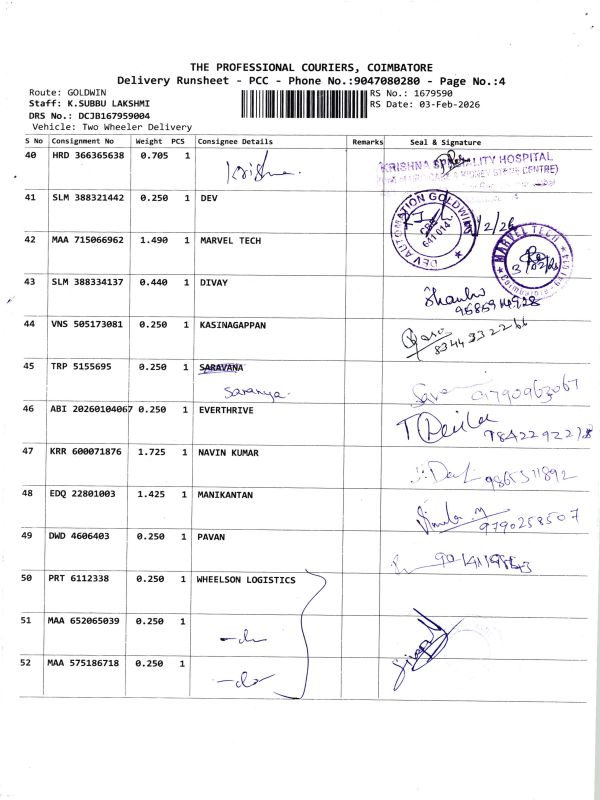 THE PROFESSIONAL COURIERS, COIMBATORE
Delivery Runsheet - PCC - Phone No.:9047080280 - Page No.:4
Route: GOLDWIN
RS No.: 1679590
Staff: K.SUBBU LAKSHMI
RS Date: 03-Feb-2026
DRS No.: DCJB167959004
Vehicle: Two Wheeler Delivery
S No Consignment No Weight PCS Consignee Details Remarks Seal & Signature
40 HRD 366365638 0.705 1 Krishna KRISHNA SPECIALITY HOSPITAL
41 SLM 388321442 0.250 1 DEV
DEV AUTOMATION GOLDWINS
641 014
42 MAA 715066962 1.490 1 MARVEL TECH
MARVEL TECH
Coimbatore
43 SLM 388334137 0.440 1 DIVAY
44 VNS 505173081 0.250 1 KASINAGAPPAN
8344332266
45 TRP 5155695 0.250 1 SARAVANA
Saranya
46 ABI 20260104067 0.250 1 EVERTHRIVE
47 KRR 600071876 1.725 1 NAVIN KUMAR
48 EDQ 22801003 1.425 1 MANIKANTAN
9790258507
49 DWD 4606403 0.250 1 PAVAN
50 PRT 6112338 0.250 1 WHEELSON LOGISTICS
51 MAA 652065039 0.250 1 -do-
52 MAA 575186718 0.250 1 -do-